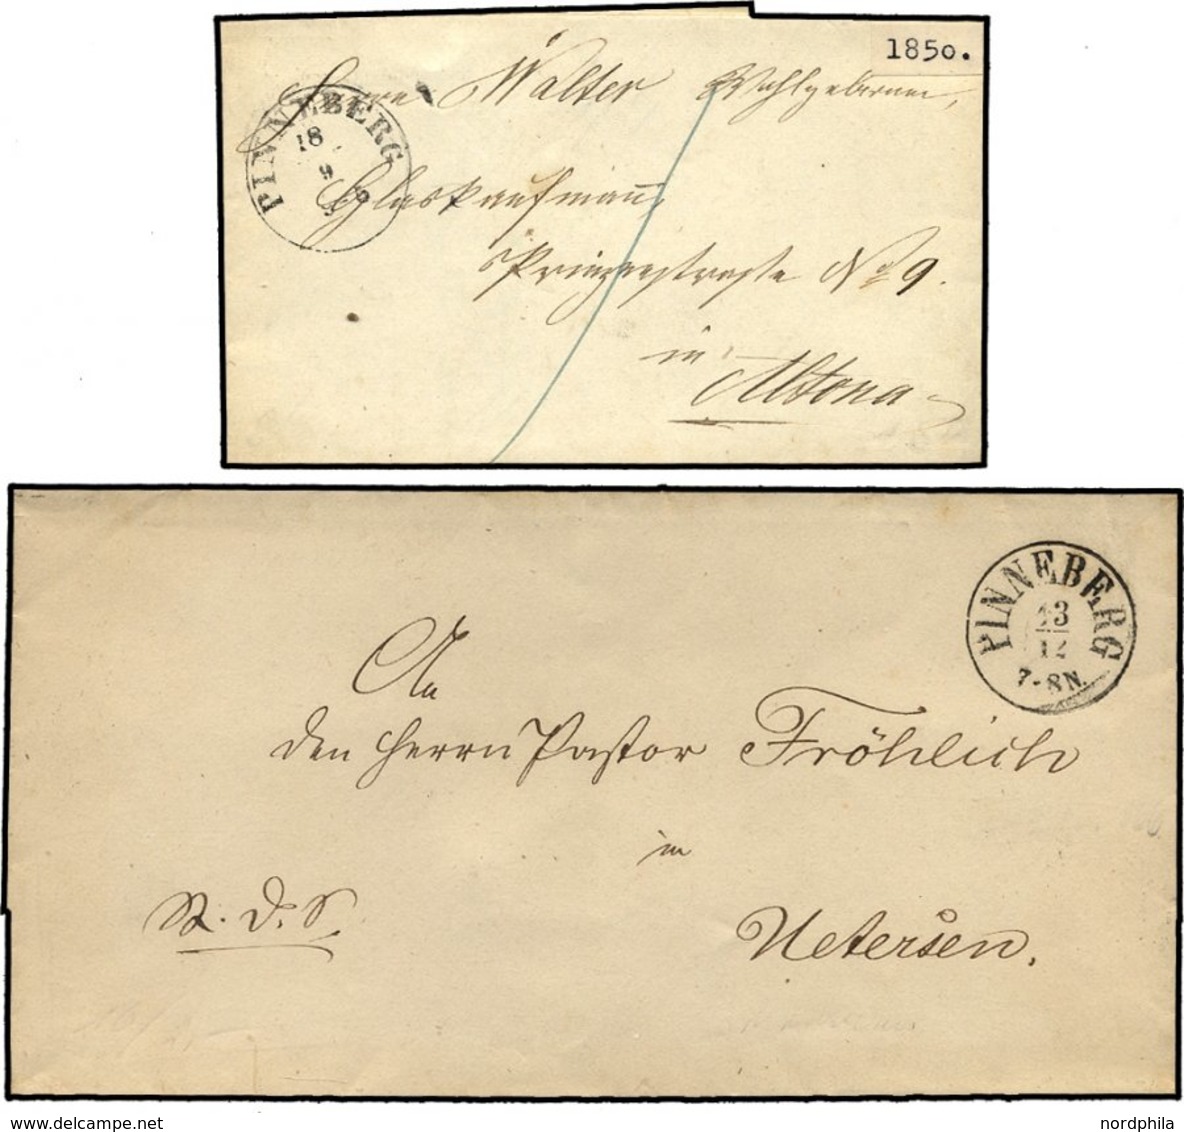 1850.
Herrn Walter Wohlgeboren,
PINNEBERG
18
9
Glaskaufmann,
Prinzenstraße No 9.
in
Altona
PINNEBERG
13
12
7-8N.
An
den Herrn Pastor Fröhlich
in
S. d. S.
Uetersen.
nordphila